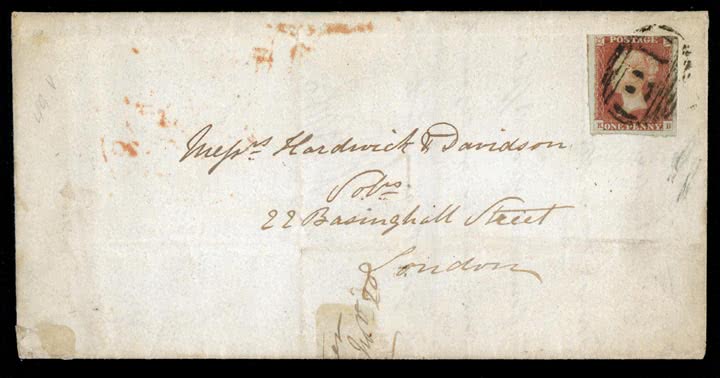 POSTAGE
ONE PENNY
Messrs Hardwick & Davidson
Solrs
22 Basinghall Street
London